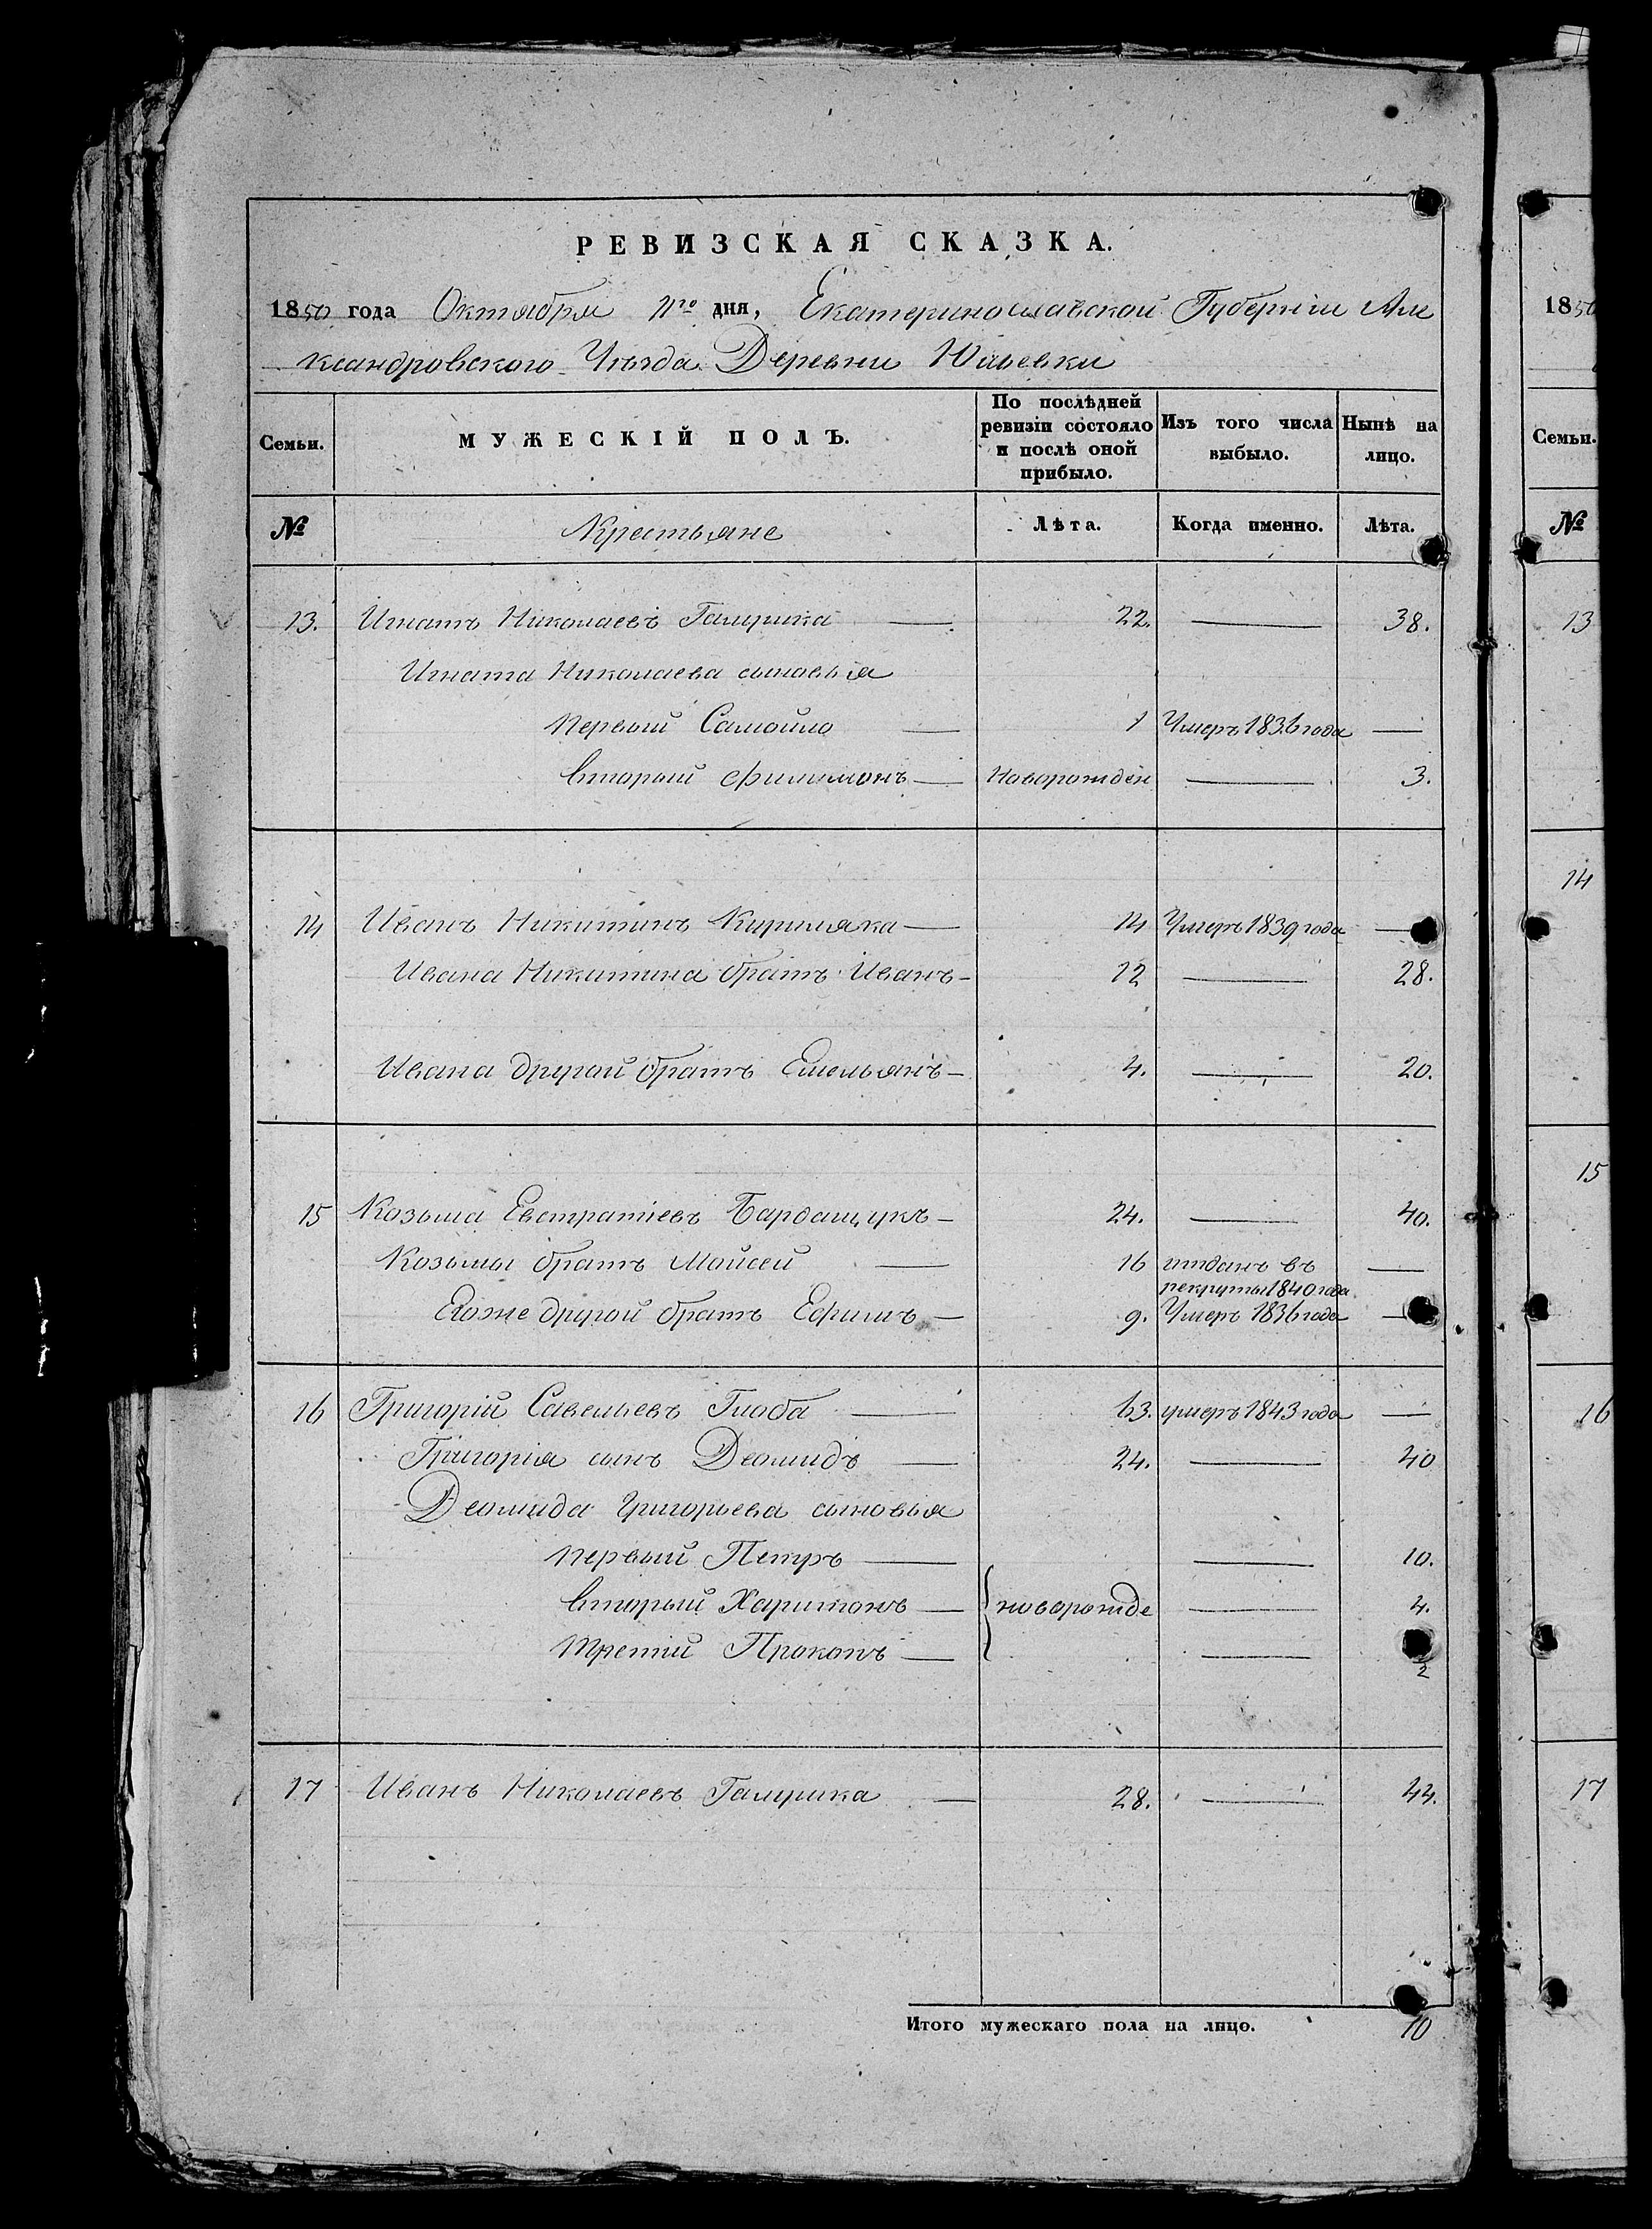 РЕВИЗСКАЯ СКАЗКА.
1850 года Октября 11го дня, Екатеринославской Губернии Але
ксандровского Уѣзда Деревни Юльевки
Семьи. МУЖЕСКІЙ ПОЛЪ. По послѣдней ревизіи состояло и послѣ оной прибыло. Изъ того числа выбыло. Нынѣ на лицо.
№ Крестьяне Лѣта. Когда именно. Лѣта.
13. Игнатъ Николаевъ Галушка — 22. — 38.
Игната Николаева сыновья
Первый Самойло — 1 Умеръ 1836 года —
Вторый Филимонъ — Новорожден — 3.
14 Иванъ Никитинъ — 14 Умеръ 1839 года —
Ивана Никитина братъ Иванъ — 12 — 28.
Ивана другой братъ Емельянъ — 4. — 20.
15 Козьма Евстратіевъ Бардащукъ — 24. — 40.
Козьмы братъ Мойсей — 16 отданъ въ рекруты 1840 года —
Егоже другой братъ Ефимъ — 9. Умеръ 1836 года —
16 Григорій Савельевъ Глоба — 63. умеръ 1843 года —
Григорія сынъ Деомидъ — 24. — 40
Деомида Григорьева сыновья
Первый Петръ — — 10.
Вторый Харитонъ — новорожде — 4.
Третій Прокопъ — — 2
17 Иванъ Николаевъ Галушка — 28. — 44.
Итого мужескаго пола на лицо. 10
1850
Семьи.
№
13
14
15
16
17